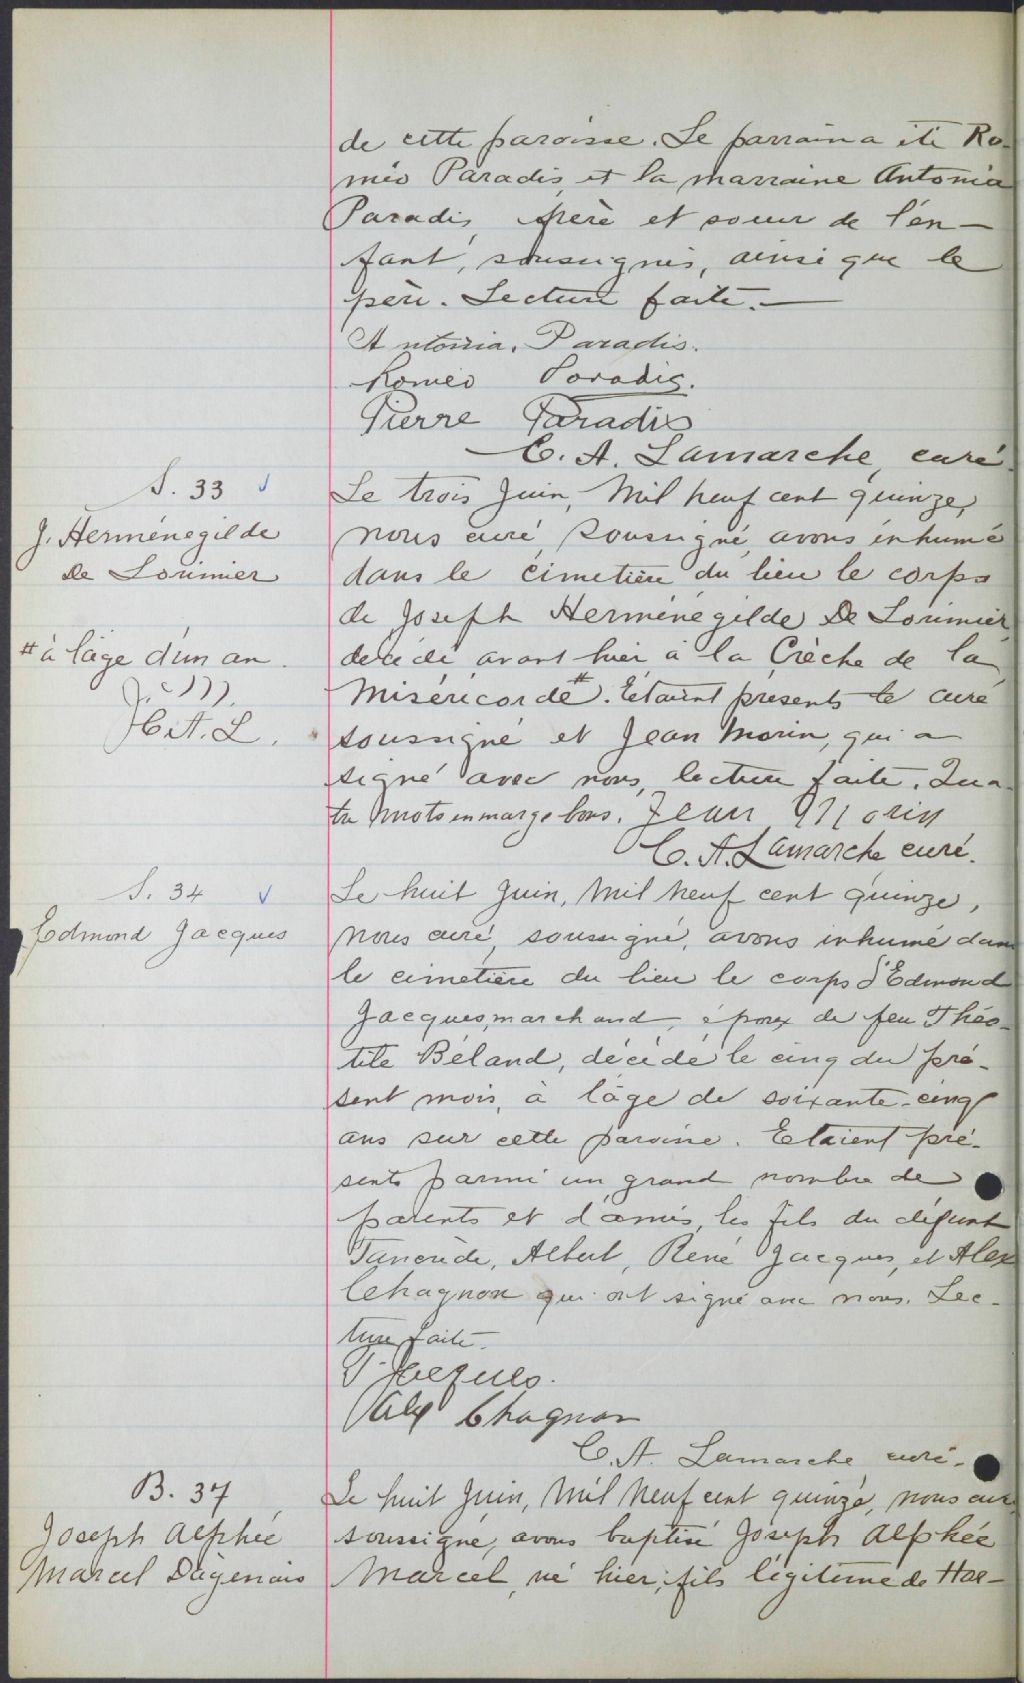 de cette paroisse. Le parrain a été Ro-
méo Paradis, et la marraine Antonia
Paradis, frère et soeur de l'en-
fant, soussignés, ainsi que le
père. Lecture faite.
Antonia. Paradis.
Romeo Paradis.
Pierre Paradis
C. A. Lamarche, curé.
S. 33
J. Herménegilde
De Lorimier
# à l'âge d'un an.
J. M.
C. A. L.
Le trois Juin, Mil neuf cent quinze,
nous curé, soussigné, avons inhumé
dans le cimetière du lieu le corps
de Joseph Herménégilde De Lorimier,
décédé avant hier à la Crèche de la
Miséricorde #. Etaient présents le curé
soussigné et Jean Morin, qui a
signé avec nous, lecture faite. Qua-
tre mots en marge bons. Jean Morin
C. A. Lamarche curé.
S. 34
Edmond Jacques
Le huit Juin, Mil Neuf cent quinze,
nous curé, soussigné, avons inhumé dans
le cimetière du lieu le corps d'Edmond
Jacques, marchand, époux de feu Théo-
tile Béland, décédé le cinq du pré-
sent mois, à l'âge de soixante-cinq
ans sur cette paroisse. Etaient pré-
sents parmi un grand nombre de
parents et d'amis, les fils du défunt
Tancrède, Albert, René Jacques, et Alex
Chagnon qui ont signé avec nous. Lec-
ture faite.
T. Jacques.
Alex Chagnon
C. A. Lamarche curé.
B. 37
Joseph Alphée
Marcel Dagenais
Le huit Juin, Mil Neuf cent quinze, nous curé
soussigné, avons baptisé Joseph Alphée
Marcel, né hier, fils légitime de Hor-